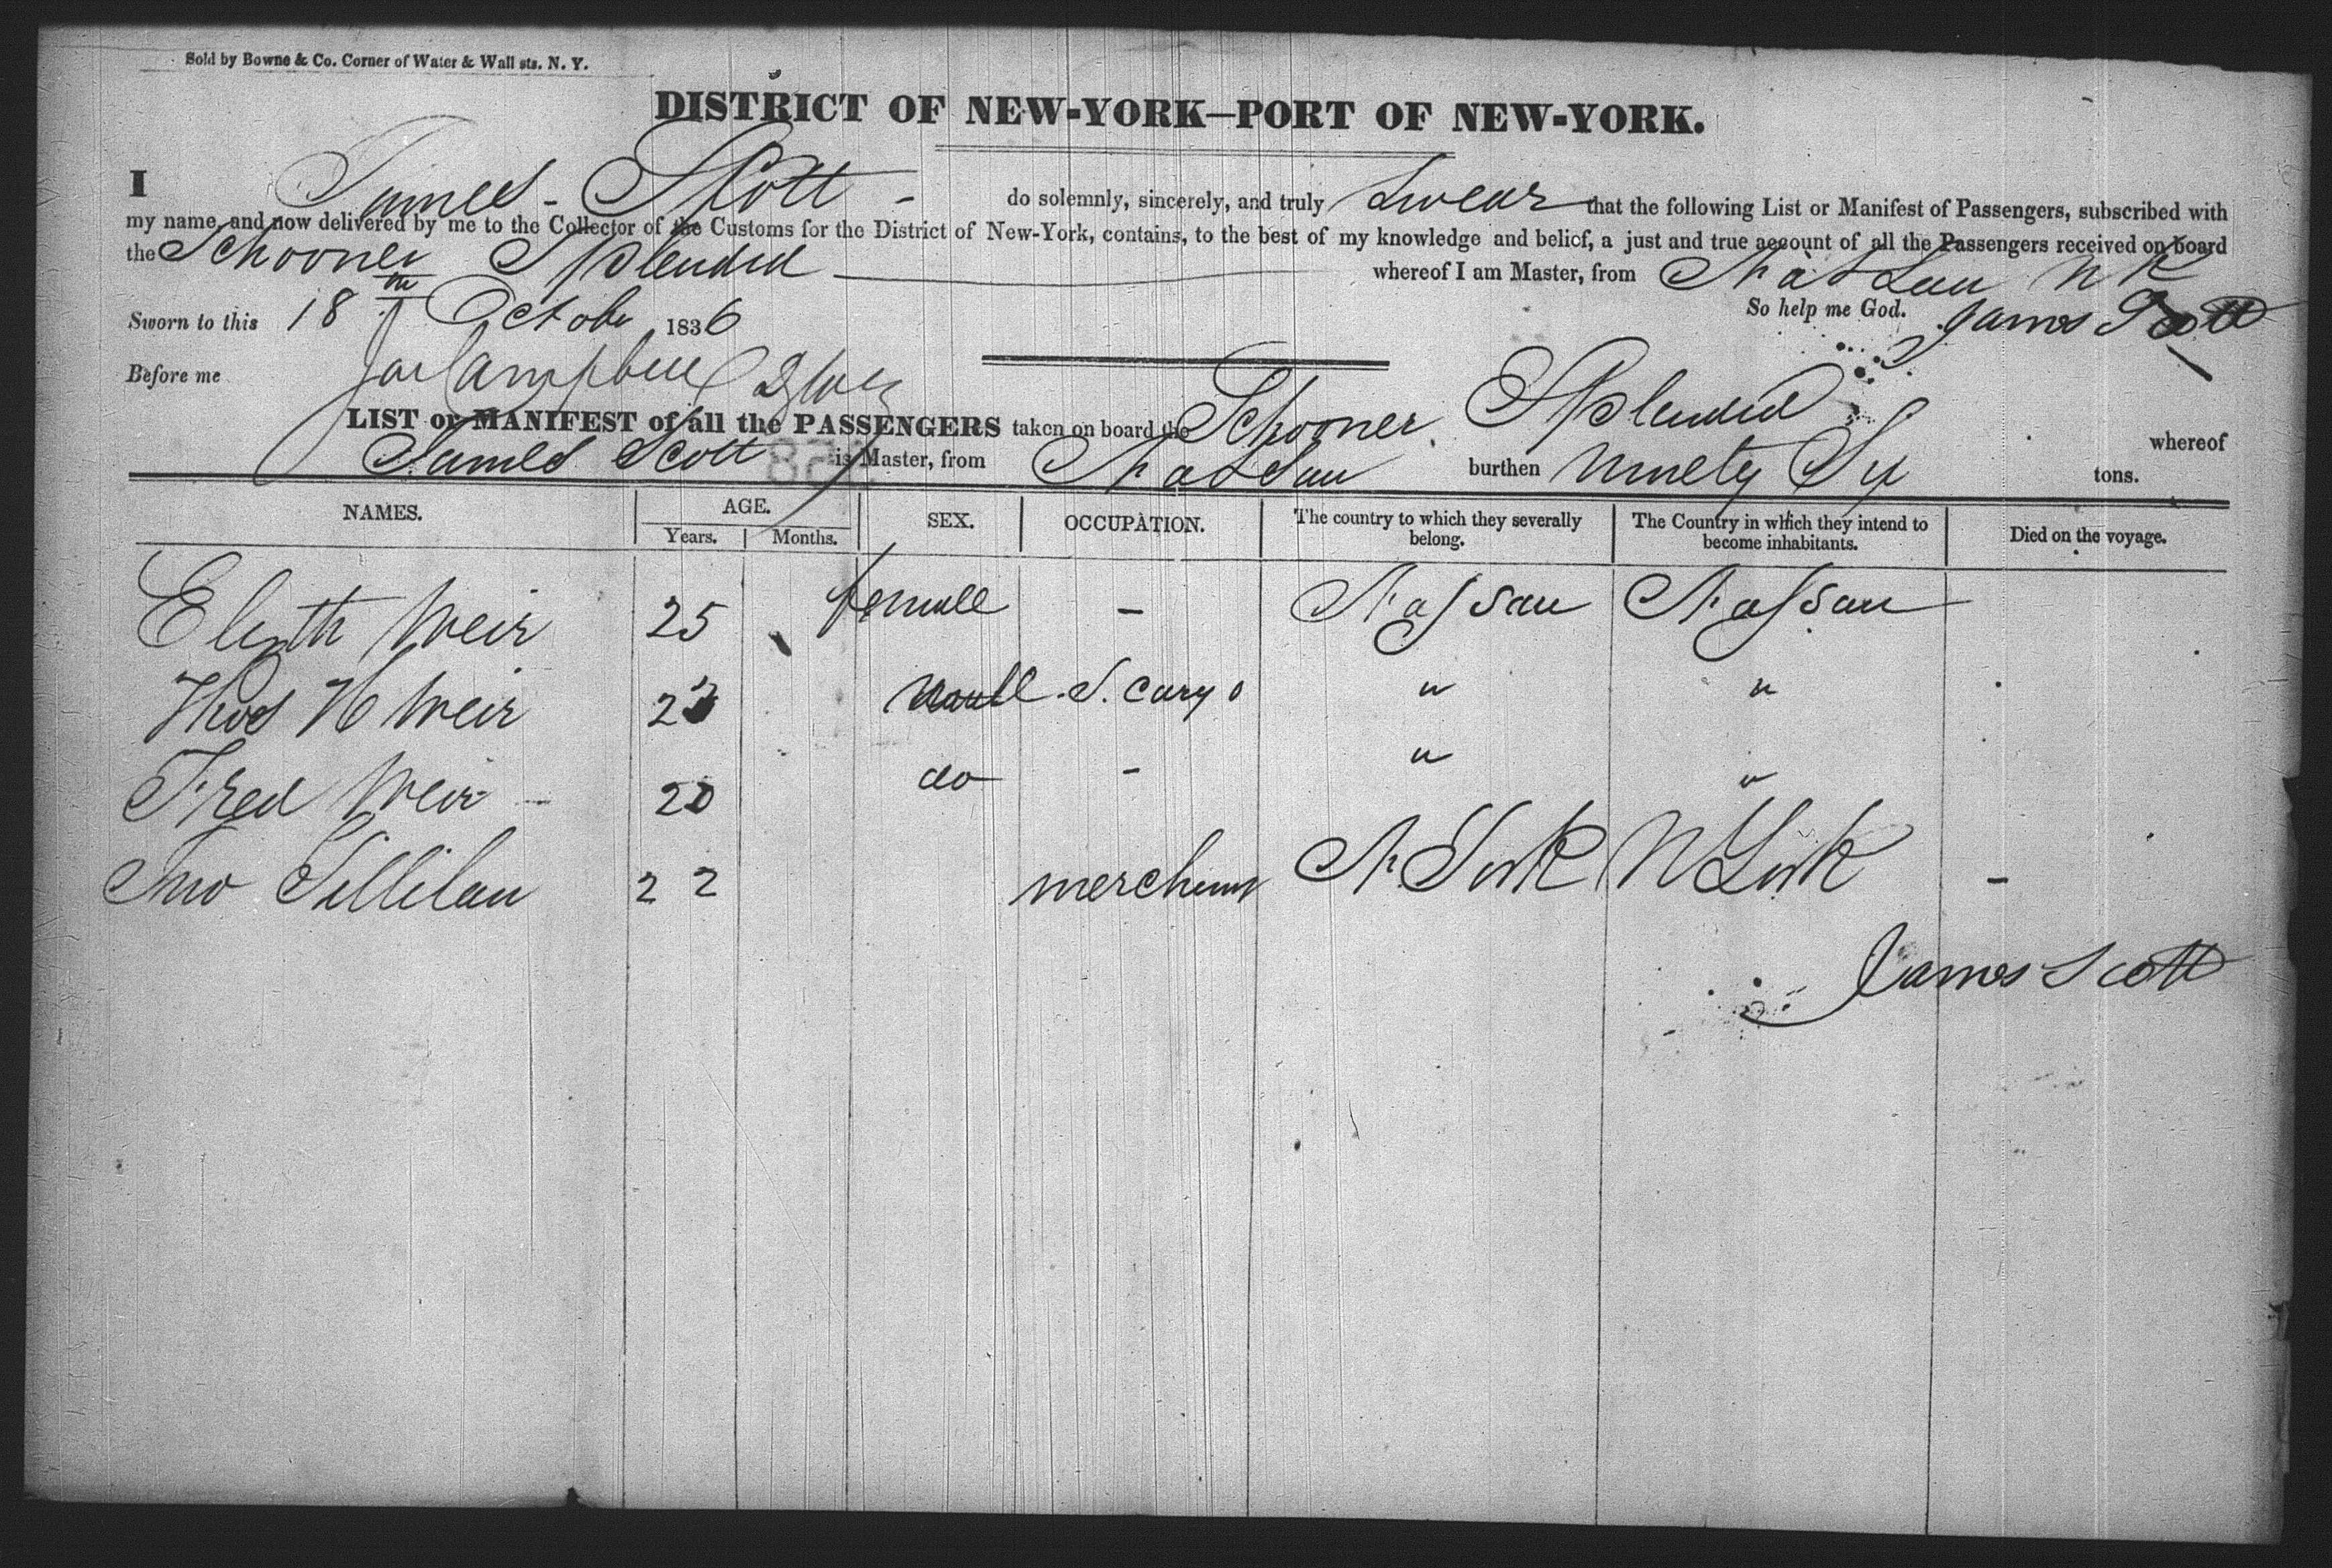 Sold by Bowne & Co. Corner of Water & Wall sts. N. Y.
DISTRICT OF NEW-YORK—PORT OF NEW-YORK.
I James - Scott - do solemnly, sincerely, and truly Swear that the following List or Manifest of Passengers, subscribed with
my name, and now delivered by me to the Collector of the Customs for the District of New-York, contains, to the best of my knowledge and belief, a just and true account of all the Passengers received on board
the Schooner Splendid whereof I am Master, from Nassau N P
Sworn to this 18th October 1836 So help me God. James Scott
Before me Campbell
LIST or MANIFEST of all the PASSENGERS taken on board the Schooner Splendid whereof
James Scott is Master, from Nassau burthen Ninety Six tons.
NAMES. AGE. SEX. OCCUPATION. The country to which they severally belong. The Country in which they intend to become inhabitants. Died on the voyage.
Years. Months.
Weir 25 female - Nassau Nassau
Thos H Weir S. Cargo " "
Fred Weir - 20 do - " "
Jno 22 merchant N. York N York -
James Scott